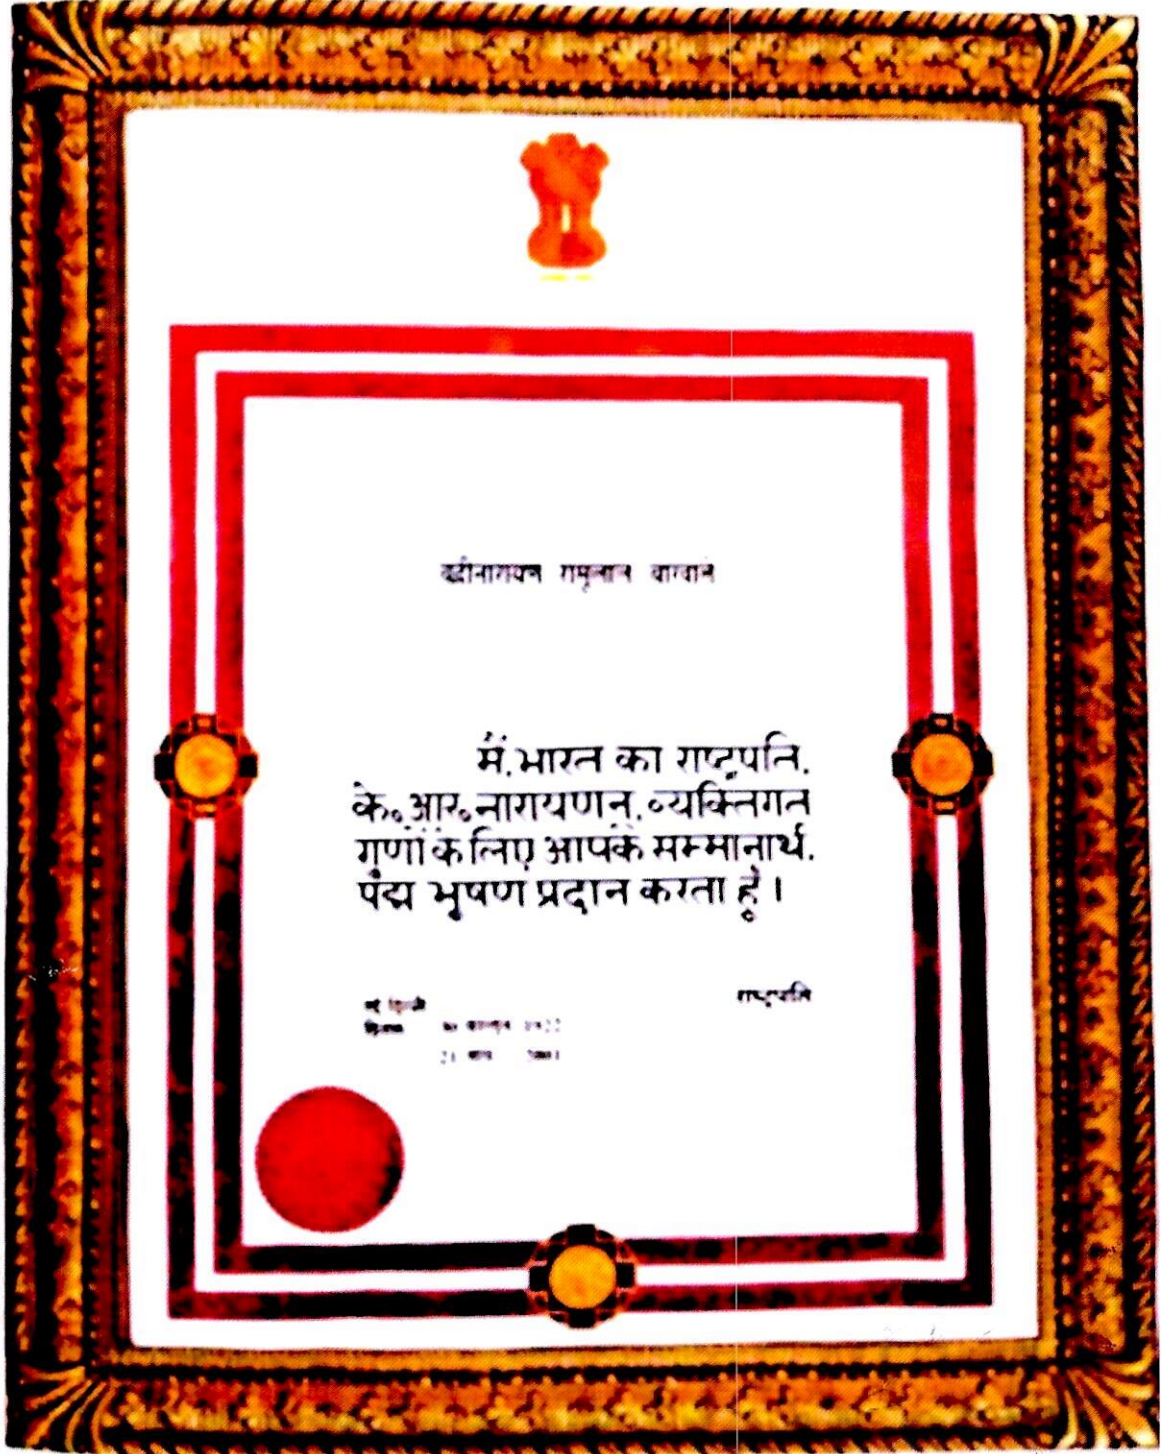 बद्रीनारायण रामूलाल बारवाले
मैं, भारत का राष्ट्रपति,
के॰ आर॰ नारायणन, व्यक्तिगत
गुणों के लिए आपके सम्मानार्थ,
पद्म भूषण प्रदान करता हूँ।
राष्ट्रपति
नई दिल्ली
दिनांक फाल्गुन 1922